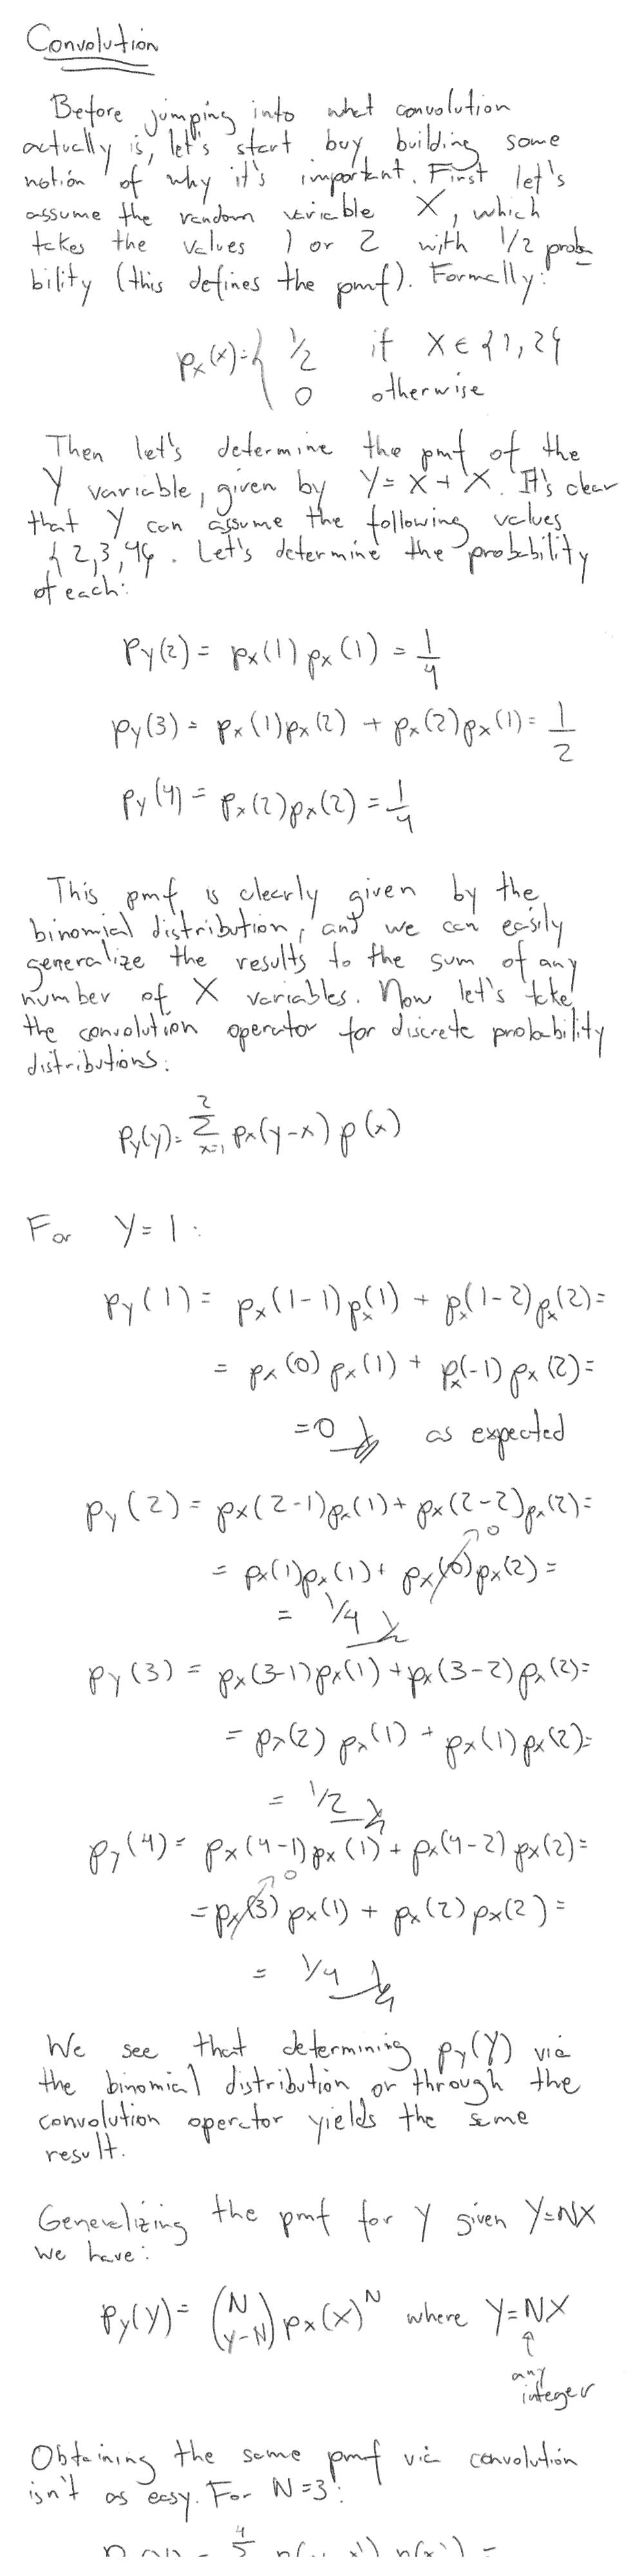 Convolution
Before jumping into what convolution
actually is, let's start buy building some
notion of why it's important. First let's
assume the random variable X, which
takes the values 1 or 2 with 1/2 proba
bility (this defines the pmf). Formally:
px(x)={ 1/2 if X ∈ {1,2}
0 otherwise
Then let's determine the pmf of the
Y variable, given by Y= X + X. It's clear
that Y can assume the following values
{2,3,4}. Let's determine the probability
of each:
py(2) = px(1) px(1) = 1/4
py(3) = px(1)px(2) + px(2)px(1) = 1/2
py(4) = px(2)px(2) = 1/4
This pmf is clearly given by the
binomial distribution, and we can easily
generalize the results to the sum of any
number of X variables. Now let's take
the convolution operator for discrete probability
distributions:
py(y) = 2 Σ x=1 px(y-x) p(x)
For Y=1:
py(1) = px(1-1)px(1) + px(1-2)px(2)=
= px(0) px(1) + px(-1) px(2)=
=0 as expected
py(2) = px(2-1)px(1) + px(2-2)px(2)=
0
= px(1)px(1) + px(0)px(2) =
= 1/4
py(3) = px(3-1)px(1) + px(3-2) px(2)=
= px(2) px(1) + px(1)px(2)=
= 1/2
py(4) = px(4-1)px(1) + px(4-2) px(2)=
0
=px(3) px(1) + px(2) px(2) =
= 1/4
We see that determining py(Y) via
the binomial distribution or through the
convolution operator yields the same
result.
Generalizing the pmf for Y given Y=NX
we have:
py(y) = (N y-N) px(x)^N where Y=NX
↑
any
integer
Obtaining the same pmf via convolution
isn't as easy. For N=3: